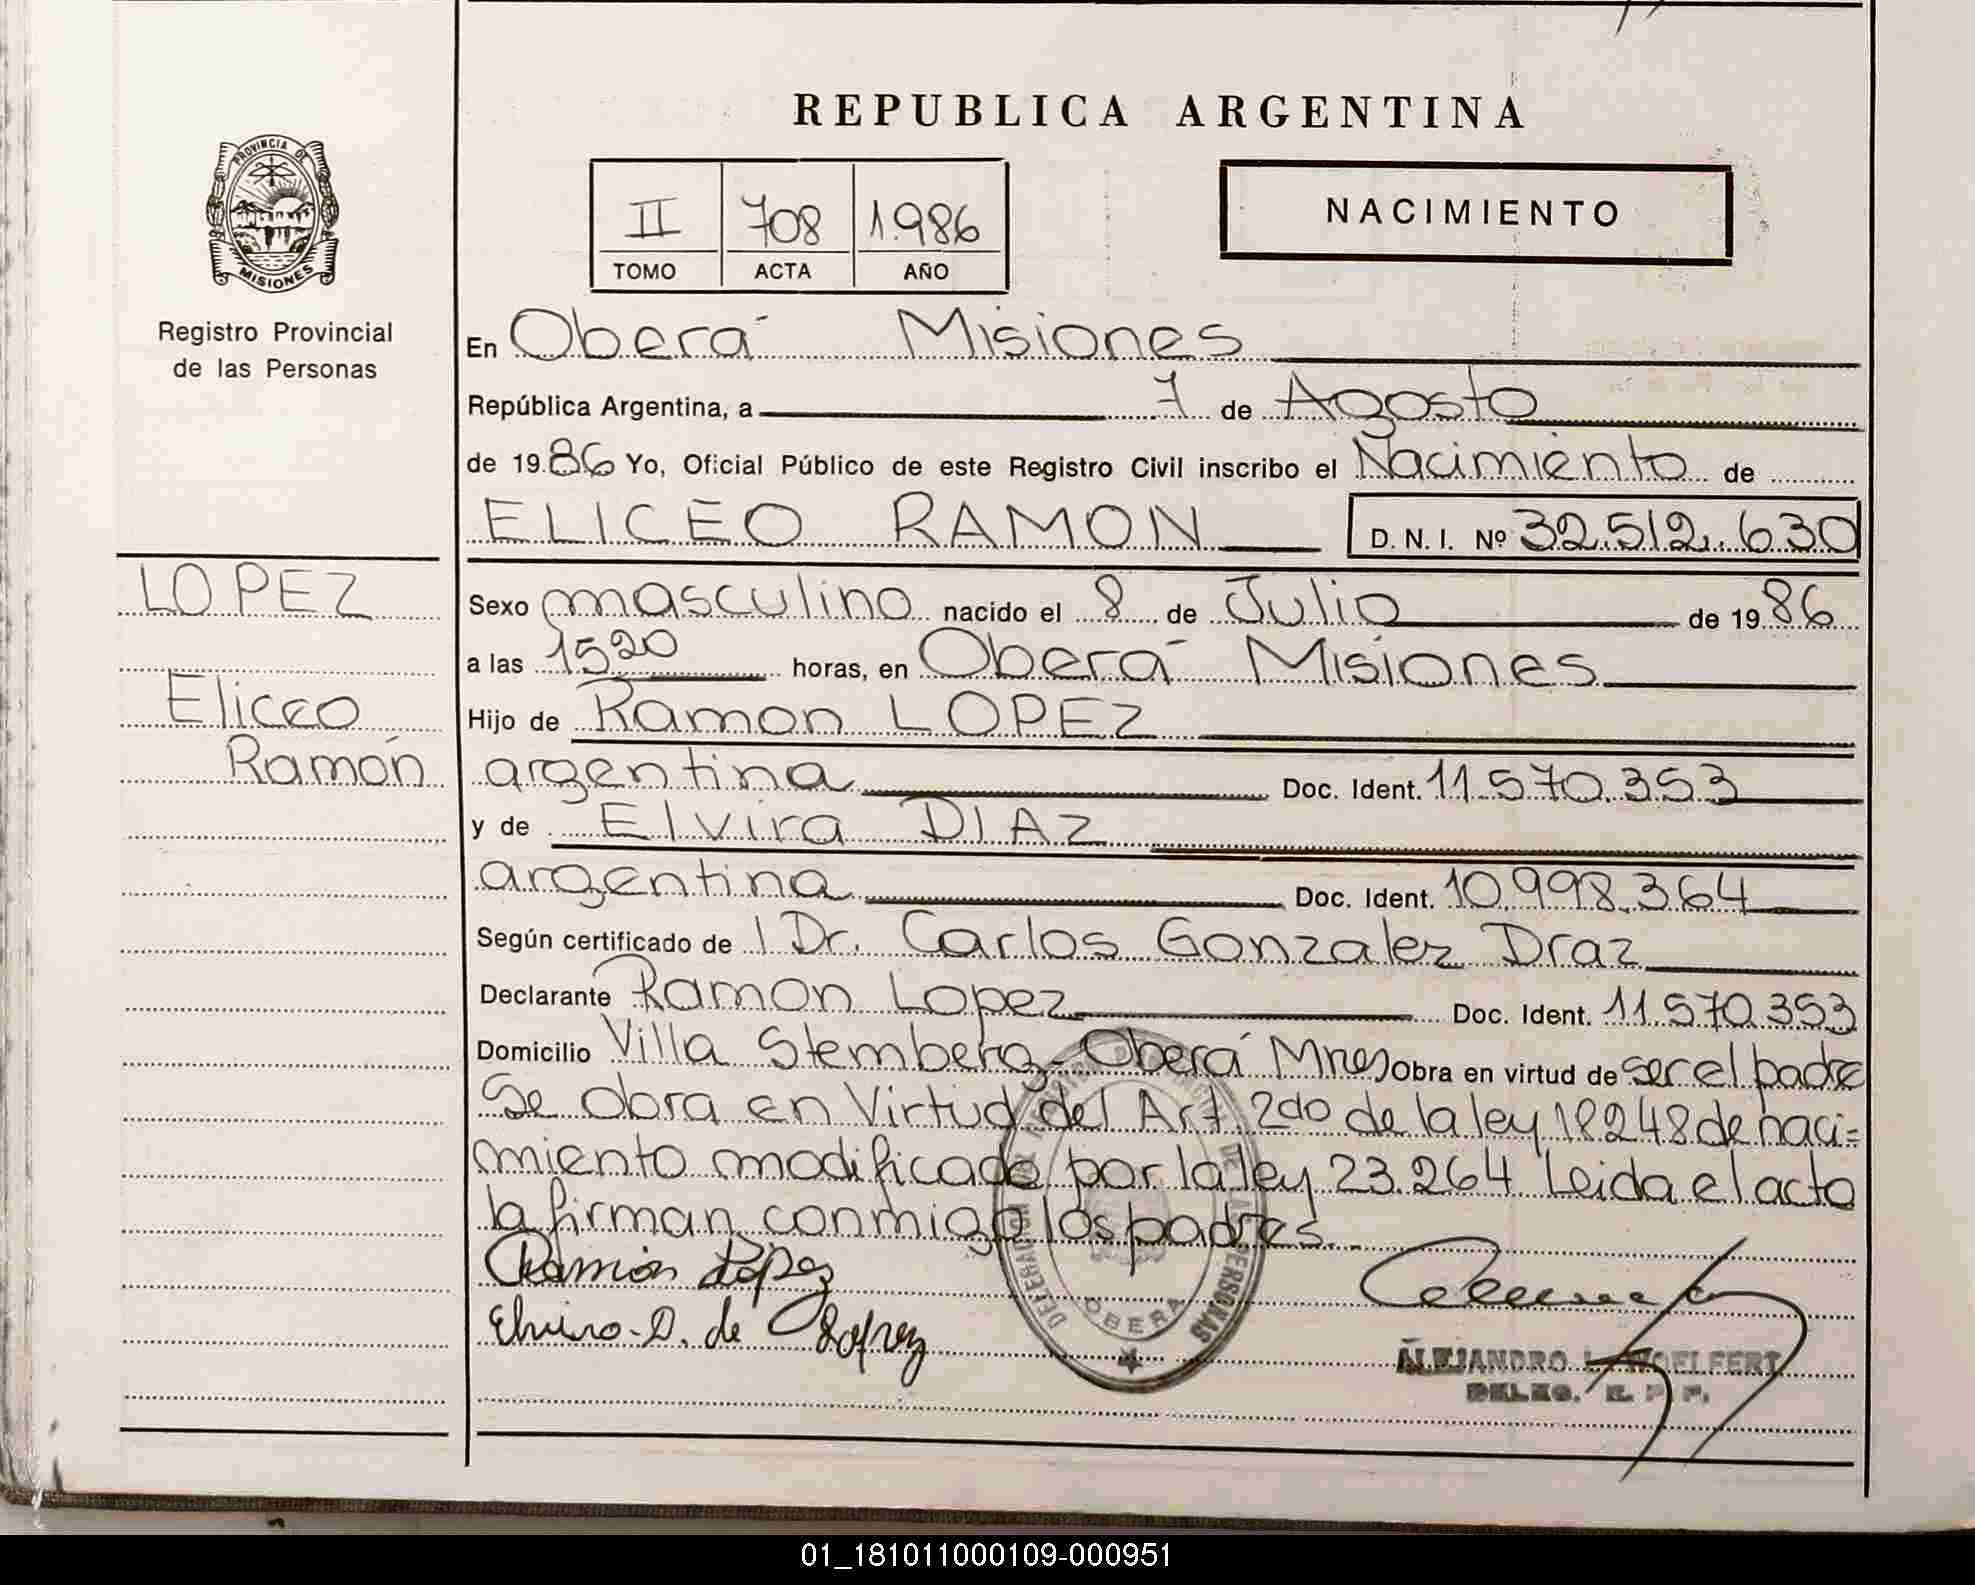 REPUBLICA ARGENTINA
PROVINCIA DE
MISIONES
Registro Provincial
de las Personas
II 708 1.986
TOMO ACTA AÑO
NACIMIENTO
En Oberá Misiones
República Argentina, a 7 de Agosto
de 19.86 Yo, Oficial Público de este Registro Civil inscribo el Nacimiento de
ELICEO RAMON D.N.I. Nº 32.512.630
LOPEZ
Eliceo
Ramón
Sexo masculino nacido el 8 de Julio de 1986
a las 1520 horas, en Oberá Misiones
Hijo de Ramon LOPEZ
argentina Doc. Ident. 11.570.353
y de Elvira DIAZ
argentina Doc. Ident. 10.998.364
Según certificado de l Dr. Carlos Gonzalez Draz
Declarante Ramon Lopez Doc. Ident. 11.570.353
Domicilio Villa Stemberg - Oberá Mnes Obra en virtud de ser el padre
Se obra en Virtud del Art. 2do de la ley 18248 de naci=
miento modificado por la ley 23.264 Leida el acta
la firman conmigo los padres.
Ramón López
Elvira D. de Lopez
OBERA
PERSONAS
ALEJANDRO L. WOELFERT
DELEG. R. P. P.
01_181011000109-000951